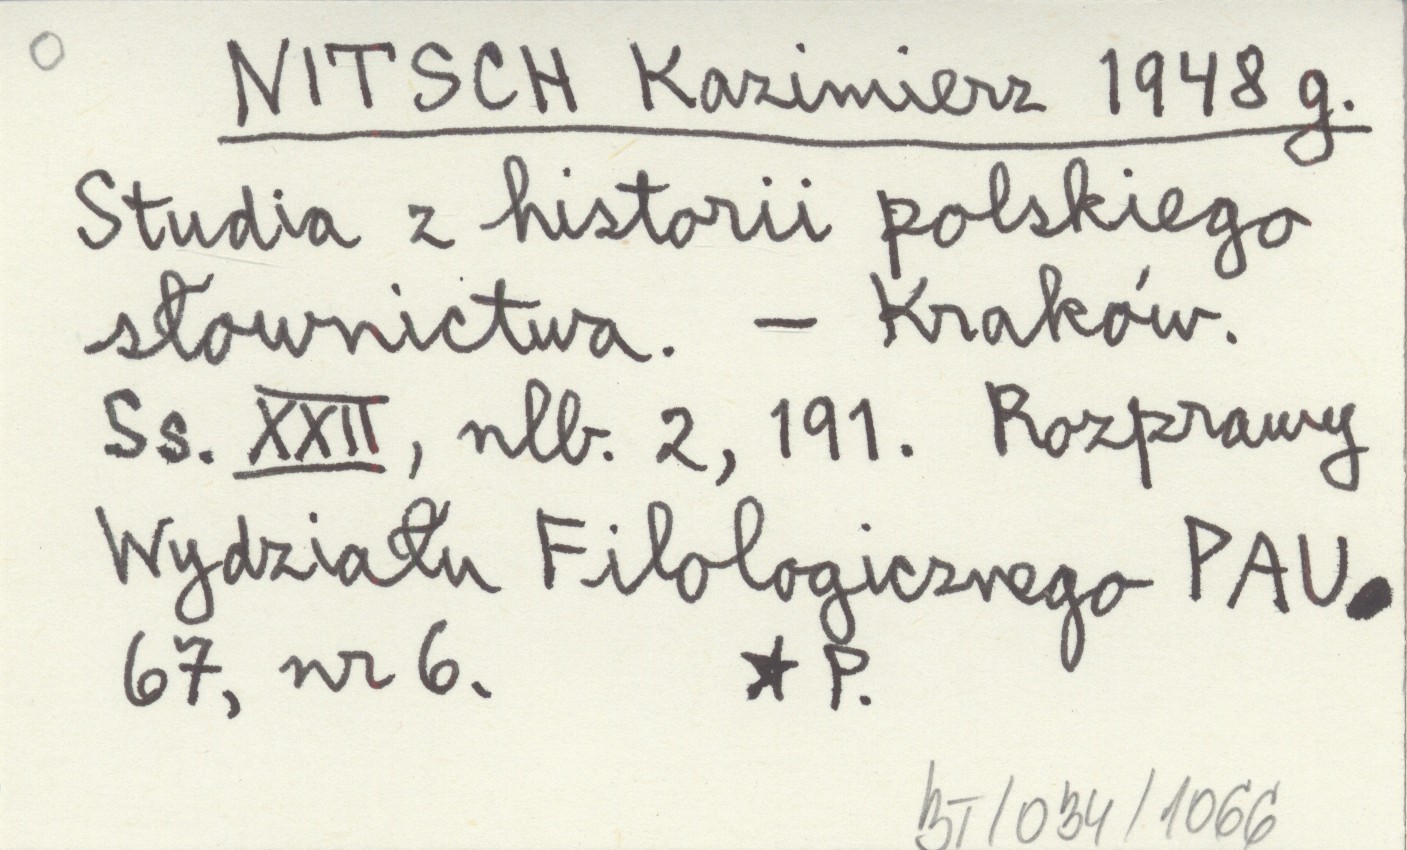 NITSCH Kazimierz 1948 g.
Studia z historii polskiego
słownictwa. – Kraków.
Ss. XXII, nlb. 2, 191. Rozprawy
Wydziału Filologicznego PAU.
67, nr 6. ★ P.
BI/034/1066